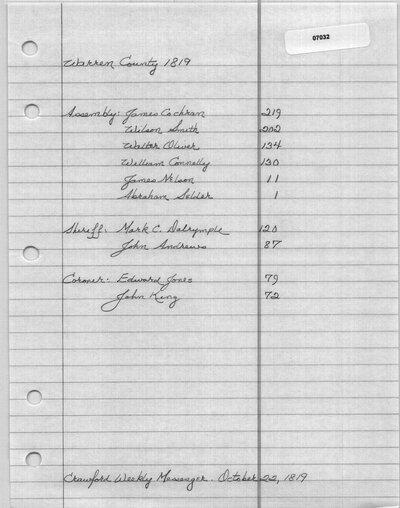 07032
Warren County 1819
Assembly: James Cochran 219
Wilson Smith 202
Walter Oliver 134
William Connelly 130
James Nelson 11
Abraham Selder 1
Sheriff: Mark C. Dalrymple 120
John Andrews 87
Coroner: Edward Jones 79
John King 72
Crawford Weekly Messenger. October 22, 1819